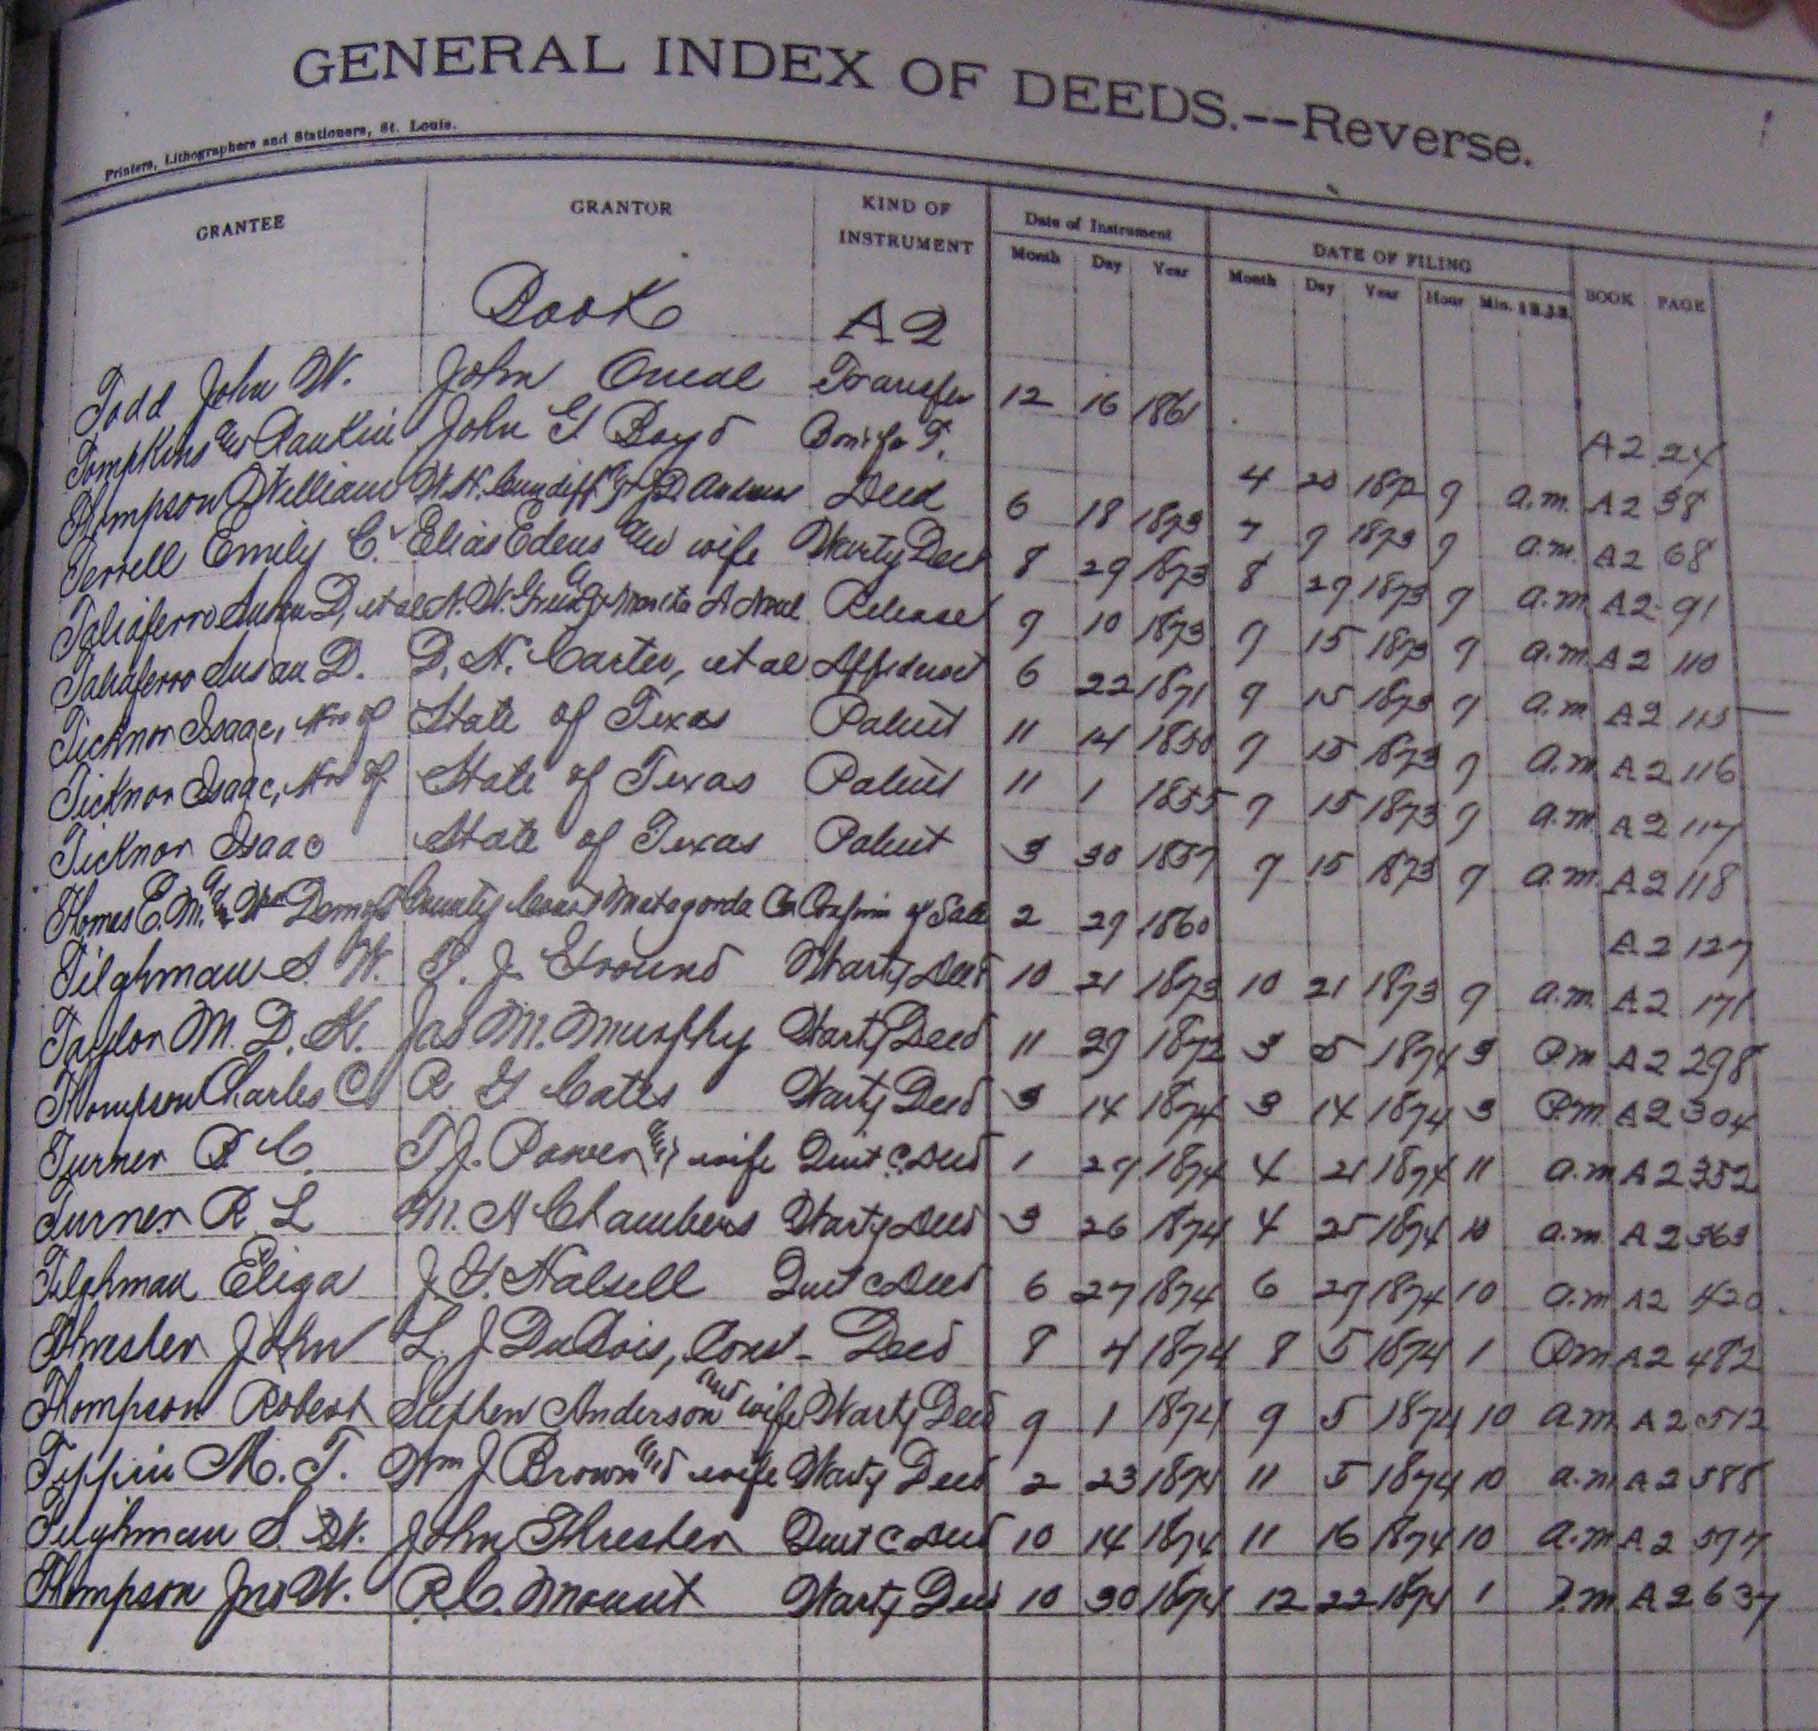 GENERAL INDEX OF DEEDS.--Reverse.
Printers, Lithographers and Stationers, St. Louis.
GRANTEE GRANTOR KIND OF INSTRUMENT Date of Instrument DATE OF FILING BOOK PAGE
Month Day Year Month Day Year Hour Min.
Book A2
Todd John W. John Oneal Transfer 12 16 1861 A2 24
Tompkins and Rankin John G Boyd 4 20 1872 9 a.m. A2 38
Thompson William W.H. Cundiff Deed 6 18 1873 7 9 1873 9 a.m. A2 68
Terrell Emily C. Elias Edens and wife Warty Deed 8 29 1873 8 29 1873 9 a.m. A2 91
Taliaferro Susan D, et al Release 9 10 1873 9 15 1873 9 a.m. A2 110
Taliaferro Susan D. D. N. Carter, et al 6 22 1871 9 15 1873 9 a.m A2 115
Ticknor Isaac, Hrs of State of Texas Patent 11 14 1850 9 15 1873 9 a.m A2 116
Ticknor Isaac, Hrs of State of Texas Patent 11 1 1855 9 15 1873 9 a.m A2 117
Ticknor Isaac State of Texas Patent 3 30 1857 9 15 1873 9 a.m. A2 118
Thomas E. M. County Court Matagorda Co of Sale 2 29 1860 A2 127
Tilghman S W. J. Warty Deed 10 21 1873 10 21 1873 9 a.m. A2 171
Taylor M. D. K. Jas M. Murphy Warty Deed 11 29 1872 3 5 1874 3 P.m A2 298
Thompson Charles C R G Cates Warty Deed 3 14 1874 3 14 1874 3 P.m. A2 304
Turner R C. T J. Power and wife Quit C. Deed 1 27 1874 4 21 1874 11 a.m A2 352
Turner R L M. A Chambers Warty Deed 3 26 1874 4 25 1874 10 a.m. A2 363
Tilghman Eliga J. G. Halsell Quit C Deed 6 27 1874 6 27 1874 10 a.m A2 420
Thresher John L. J DuBois, Const- Deed 8 4 1874 8 5 1874 1 P.m A2 482
Thompson Robert Stephen Anderson and wife Warty Deed 9 1 1874 9 5 1874 10 a.m. A2 512
Tippin M. T. Wm J Brown and wife Warty Deed 2 23 1874 11 5 1874 10 a.m A2 588
Tilghman S. W. John Thresher Quit C Deed 10 14 1874 11 16 1874 10 a.m A2 577
Thompson Jno W. R.C. Mount Warty Deed 10 30 1874 12 22 1874 1 P.m A2 637